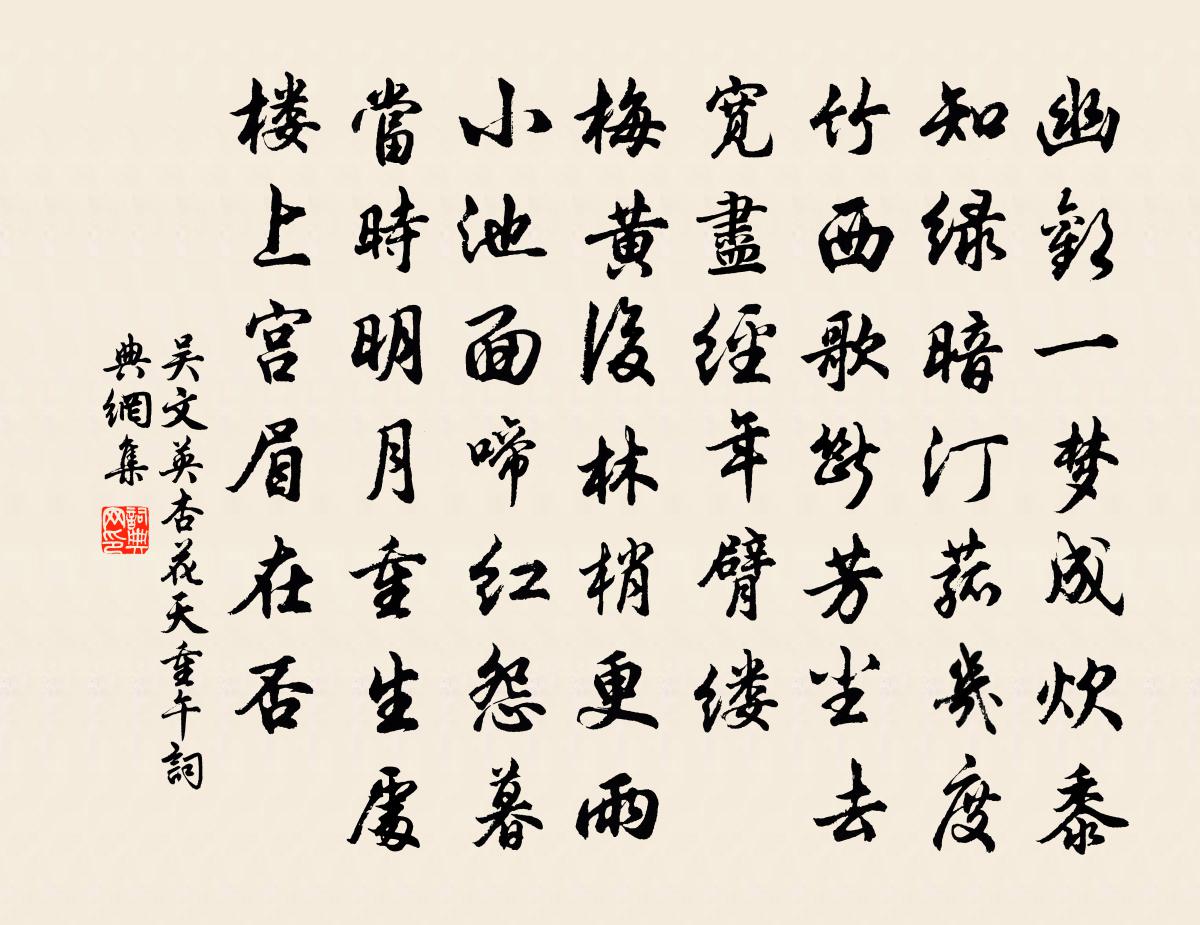 幽歡一梦成炊黍
知绿暗汀菰幾度
竹西歌断芳尘去
寬盡經年臂缕
梅黄後林梢更雨
小池面啼红怨暮
當時明月重生處
楼上宫眉在否
吴文英杏花天重午詞
典網集
詞典网印